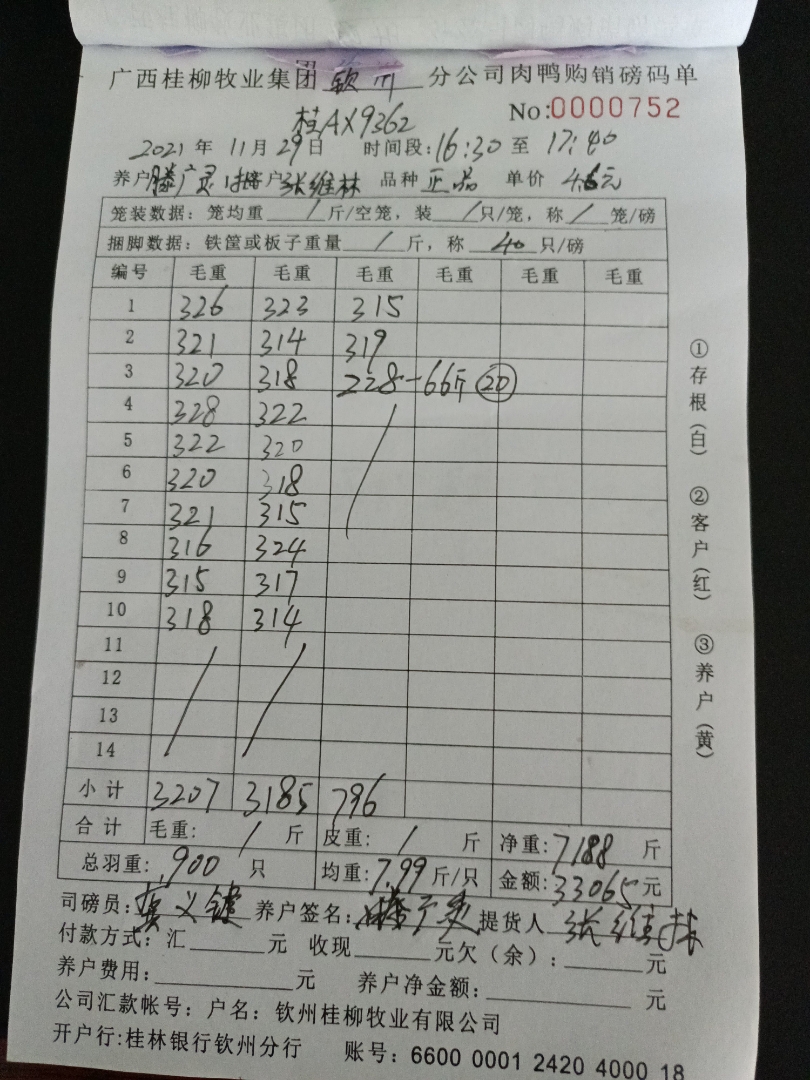 广西桂柳牧业集团 钦州 分公司肉鸭购销磅码单
桂AX9362 No:0000752
2021 年 11 月 29 日 时间段: 16:30 至 17:40
养户 滕广灵 客户 张维林 品种 正品 单价 4.6元
笼装数据: 笼均重 / 斤/空笼, 装 / 只/笼, 称 / 笼/磅
捆脚数据: 铁筐或板子重量 / 斤, 称 40 只/磅
编号 毛重 毛重 毛重 毛重 毛重 毛重
1 326 323 315
2 321 314 319
3 320 318 228-66斤 ⑳
4 328 322 /
5 322 320
6 320 318
7 321 315
8 316 324
9 315 317
10 318 314
11 / /
12
13
14
小计 3207 3185 796
合计 毛重: / 斤 皮重: / 斤 净重: 7188 斤
总羽重: 900 只 均重: 7.99 斤/只 金额: 33065 元
司磅员: 养户签名: 提货人 张维林
付款方式: 汇 元 收现 元欠(余): 元
养户费用: 元 养户净金额: 元
公司汇款帐号: 户名: 钦州桂柳牧业有限公司
开户行: 桂林银行钦州分行 账号: 6600 0001 2420 4000 18
①存根(白) ②客户(红) ③养户(黄)